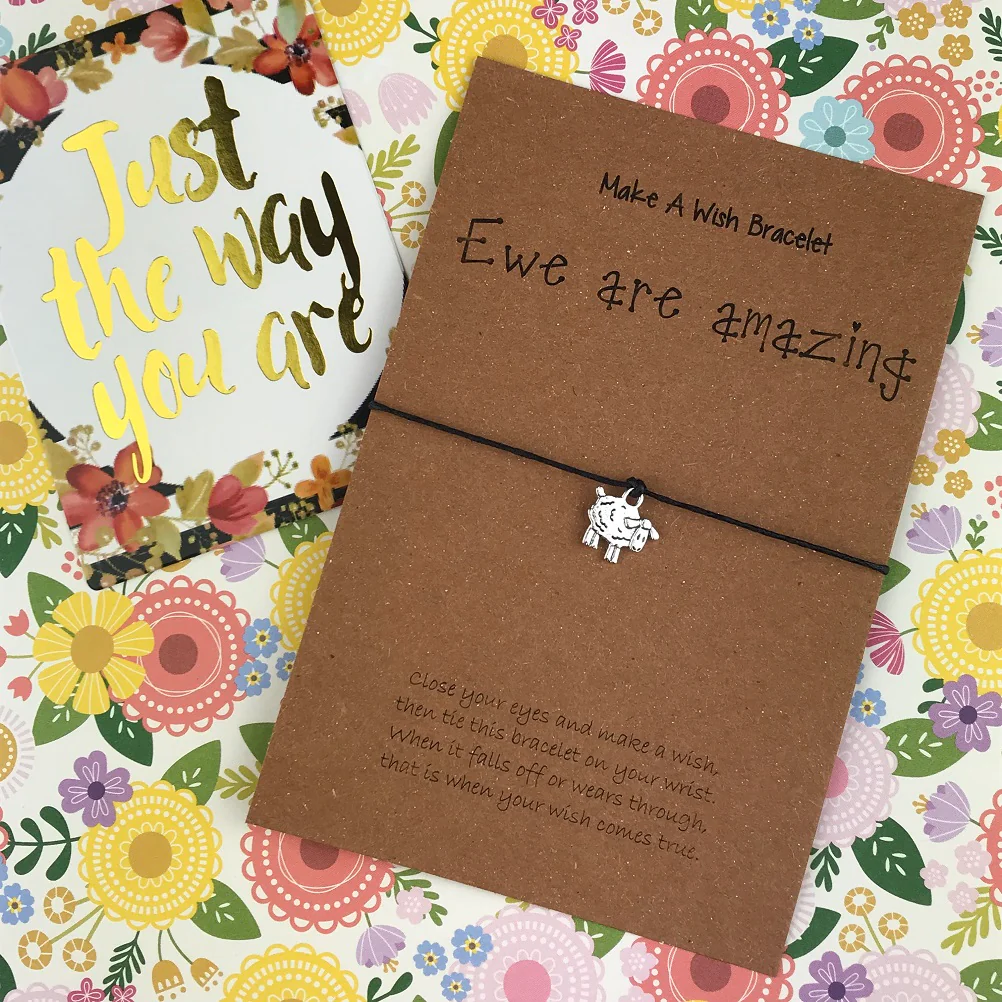 Just
the way
you are
Make A Wish Bracelet
Ewe are amazing
Close your eyes and make a wish,
then tie this bracelet on your wrist.
When it falls off or wears through,
that is when your wish comes true.